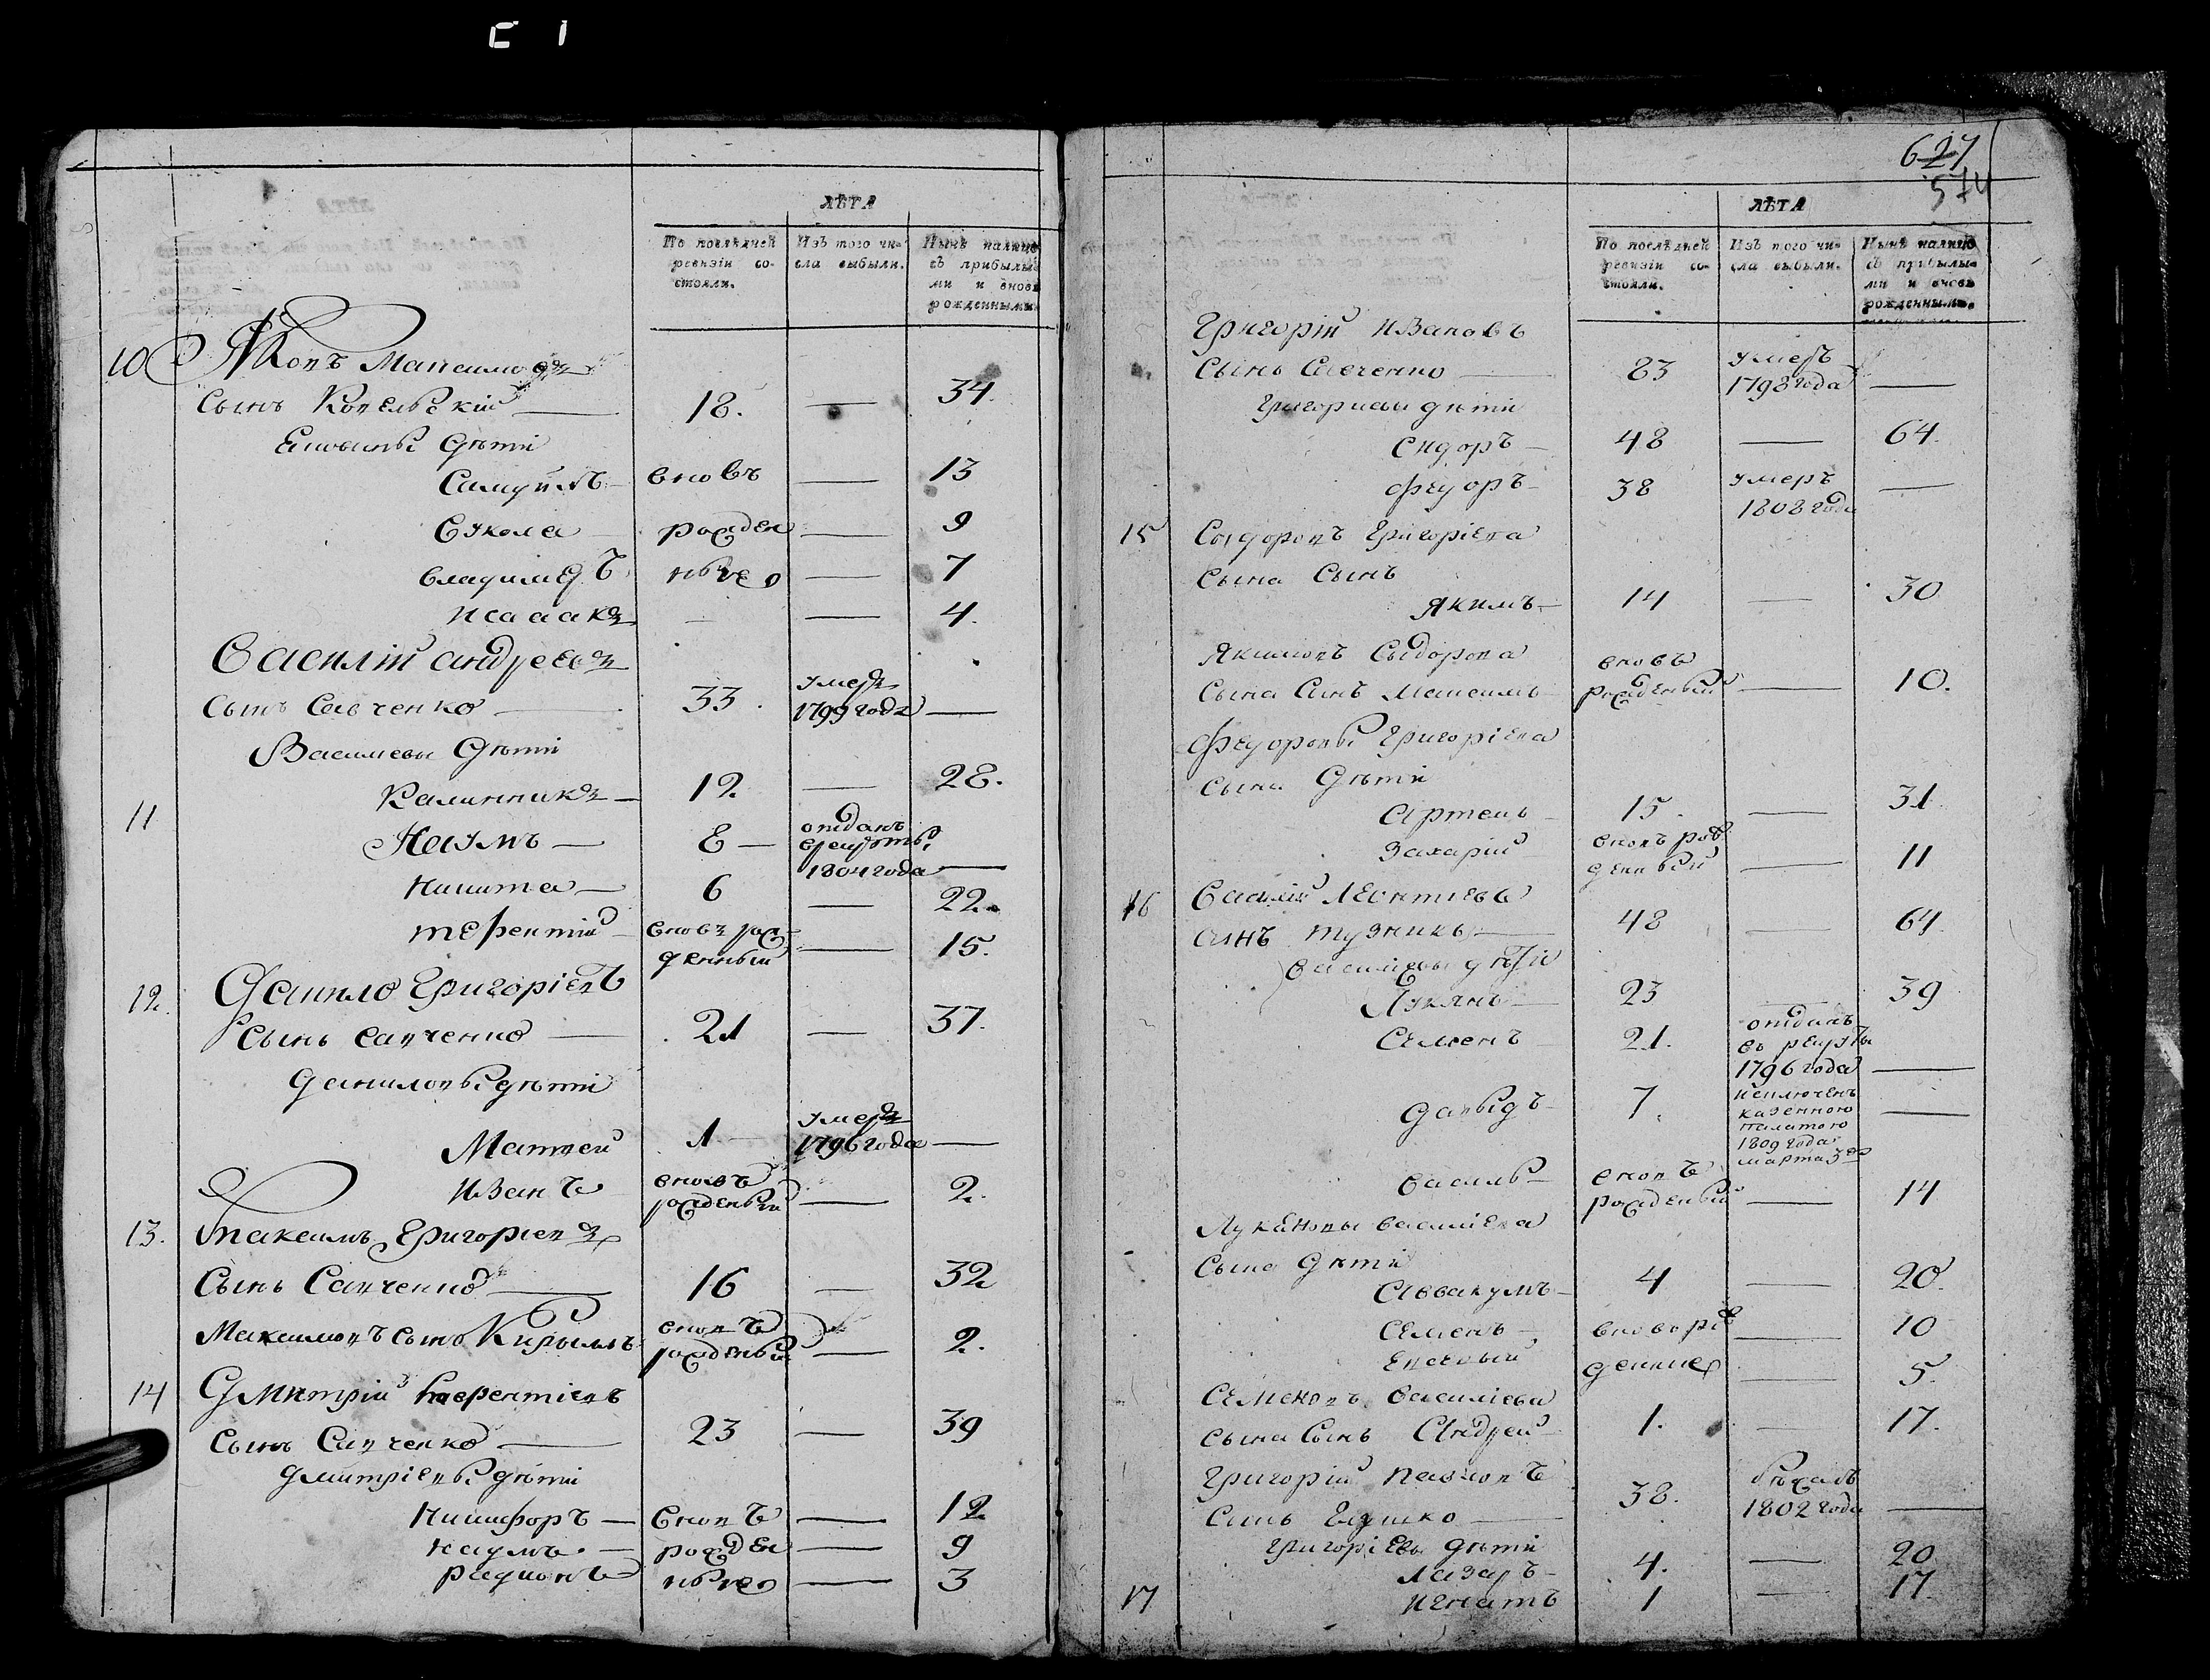 ЛѢТА
По послѣдней ревизіи состояли.
Изъ того числа выбыли.
Нынѣ налицо съ прибылыми и вновь рожденными.
10 Яковъ Максимовъ
сынъ Копельскій — 18. — 34.
Самуилъ вновь — 13
рожден — 9
владимеръ ные — 7
исаакъ — — 4.
Василій андреевъ
сынъ Савченко — 33. умеръ 1799 года —
Василиевы дѣти
11 Калинникъ — 12. — 28.
Наумъ — 8 — отданъ в рекруты 1804 года —
Никита — 6 — 22.
терентій вновь рожденный — 15.
12. Данило григоріевъ
сынъ савченко — 21 — 37.
даниловы дѣти
Матвей 1 — умеръ 1796 года —
иванъ вновь рожденый — 2.
13. Максимъ григориевъ
сынъ Савченко — 16 — 32
Максимовъ сынъ Кирылъ вновъ рожденый — 2.
14 Дмитрій терентіевъ
сынъ Савченко — 23 — 39
дмитріевы дѣти
Никифоръ — вновъ — 12
наумъ — рожден — 9
радионъ ные — 3
627
574
ЛѢТА
По послѣдней ревизіи состояли.
Изъ того числа выбыли.
Нынѣ налицо съ прибылыми и вновь рожденными.
григорій ивановъ
сынъ Савченко — 83 умеръ 1798 года —
григориевы дѣти
сидоръ — 48 — 64.
федоръ — 38 умеръ 1808 года —
15 Сыдоровъ григоріева
сына сынъ
якимъ — 14 — 30
якимовъ Сыдорова вновъ
сына синъ Максимъ рожденый — 10.
федоровы григоріева
сына дѣти
артемъ 15. — 31.
захарій вновъ рожденый — 11
16 Василій леонтіевъ
синъ тузникъ — 48 — 64.
василиевы дѣти
Лукянъ — 23 — 39
Семенъ 21. отданъ въ рекруты 1796 года —
давыдъ — 7. исключенъ казенною палатою 1809 года марта 3го —
василь — вновъ рожденый — 14
Лукяновы василіева
сына дѣти
аввакумъ — 4 — 20.
Семенъ — вново рож — 10
денние — 5.
Семеновъ василиева
сына сынъ андрей 1. — 17.
григорій павловъ
синъ — 38. бѣжалъ 1802 года —
григоріевы дѣти
лазаръ — 4. — 20
17 игнатъ 1 — 17.